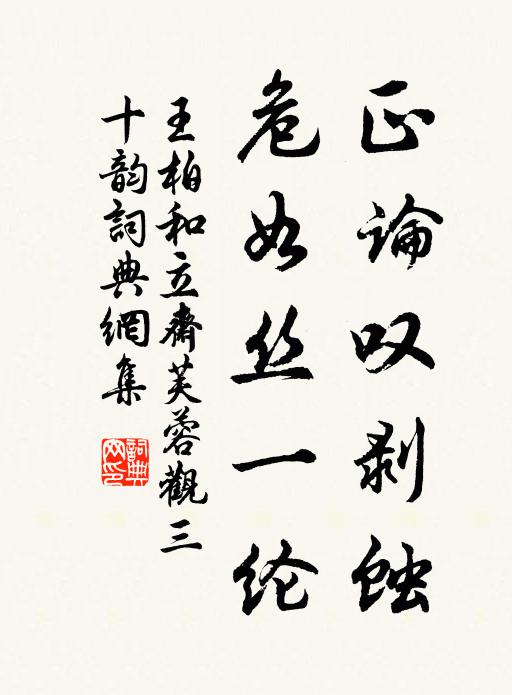 正論叹剥蚀
危如丝一纶
王柏和立齋芙蓉觀三
十韵詞典網集
詞典
网印